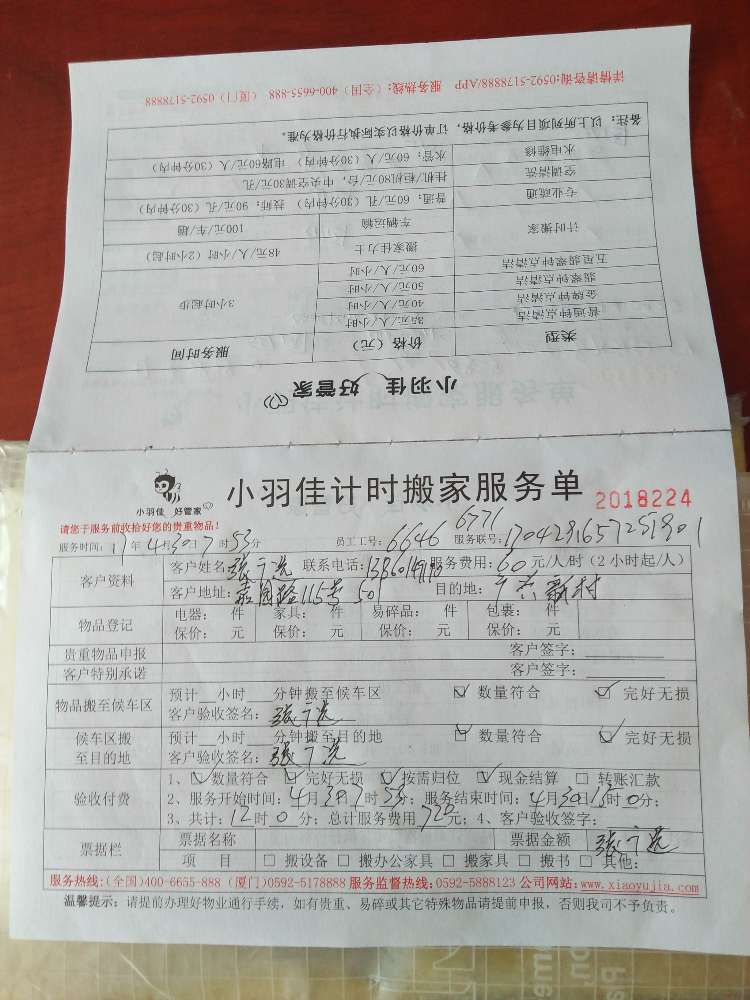 小羽佳 好管家
类型 价格（元） 服务时间
普通钟点清洁 35元/人/小时 3小时起步
金牌钟点清洁 40元/人/小时
翡翠钟点清洁 50元/人/小时
五星翡翠钟点清洁 60元/人/小时
计时搬家 搬家佳力士 48元/人/小时（2小时起）
车辆运输 100元/车/趟
专业疏通 普通：60元/孔（30分钟内） 技师：90元/孔（30分钟内）
空调清洗 挂机/柜机80元/台，中央空调30元/孔
水电维修 水管：60元/人（30分钟内） 电路60元/人（30分钟内）
备注：以上所列项目为参考价格，订单价格以实际执行价格为准。
详情请咨询:0592-5178888/APP 服务热线:（全国）400-6655-888 （厦门）0592-5178888
小羽佳 好管家
小羽佳计时搬家服务单 2018224
请您于服务前收拾好您的贵重物品！
服务时间：17年4月30日7时53分 员工工号：6646 6771 服务联号：
客户资料 客户姓名： 联系电话： 服务费用：60元/人/时（2小时起/人）
客户地址：115号501 目的地：新村
物品登记 电器： 件 家具： 件 易碎品： 件 包裹： 件
保价： 元 保价： 元 保价： 元 保价： 元
贵重物品申报 客户签字：
客户特别承诺 客户签字：
物品搬至候车区 预计 小时 分钟搬至候车区 数量符合 完好无损
客户验收签名：
候车区搬至目的地 预计 小时 分钟搬至目的地 数量符合 完好无损
客户验收签名：
验收付费 1、数量符合 完好无损 按需归位 现金结算 转账汇款
2、服务开始时间：4月30日7时53分；服务结束时间：4月30日13时0分；
3、共计：12时0分；总计服务费用720元；4、客户验收签字：
票据栏 票据名称 票据金额
项 目 搬设备 搬办公家具 搬家具 搬书 其他：
服务热线:(全国)400-6655-888 (厦门)0592-5178888 服务监督热线:0592-5888123 公司网站:www.xiaoyujia.com
温馨提示：请提前办理好物业通行手续，如有贵重、易碎或其它特殊物品请提前申报，否则我司不予负责。